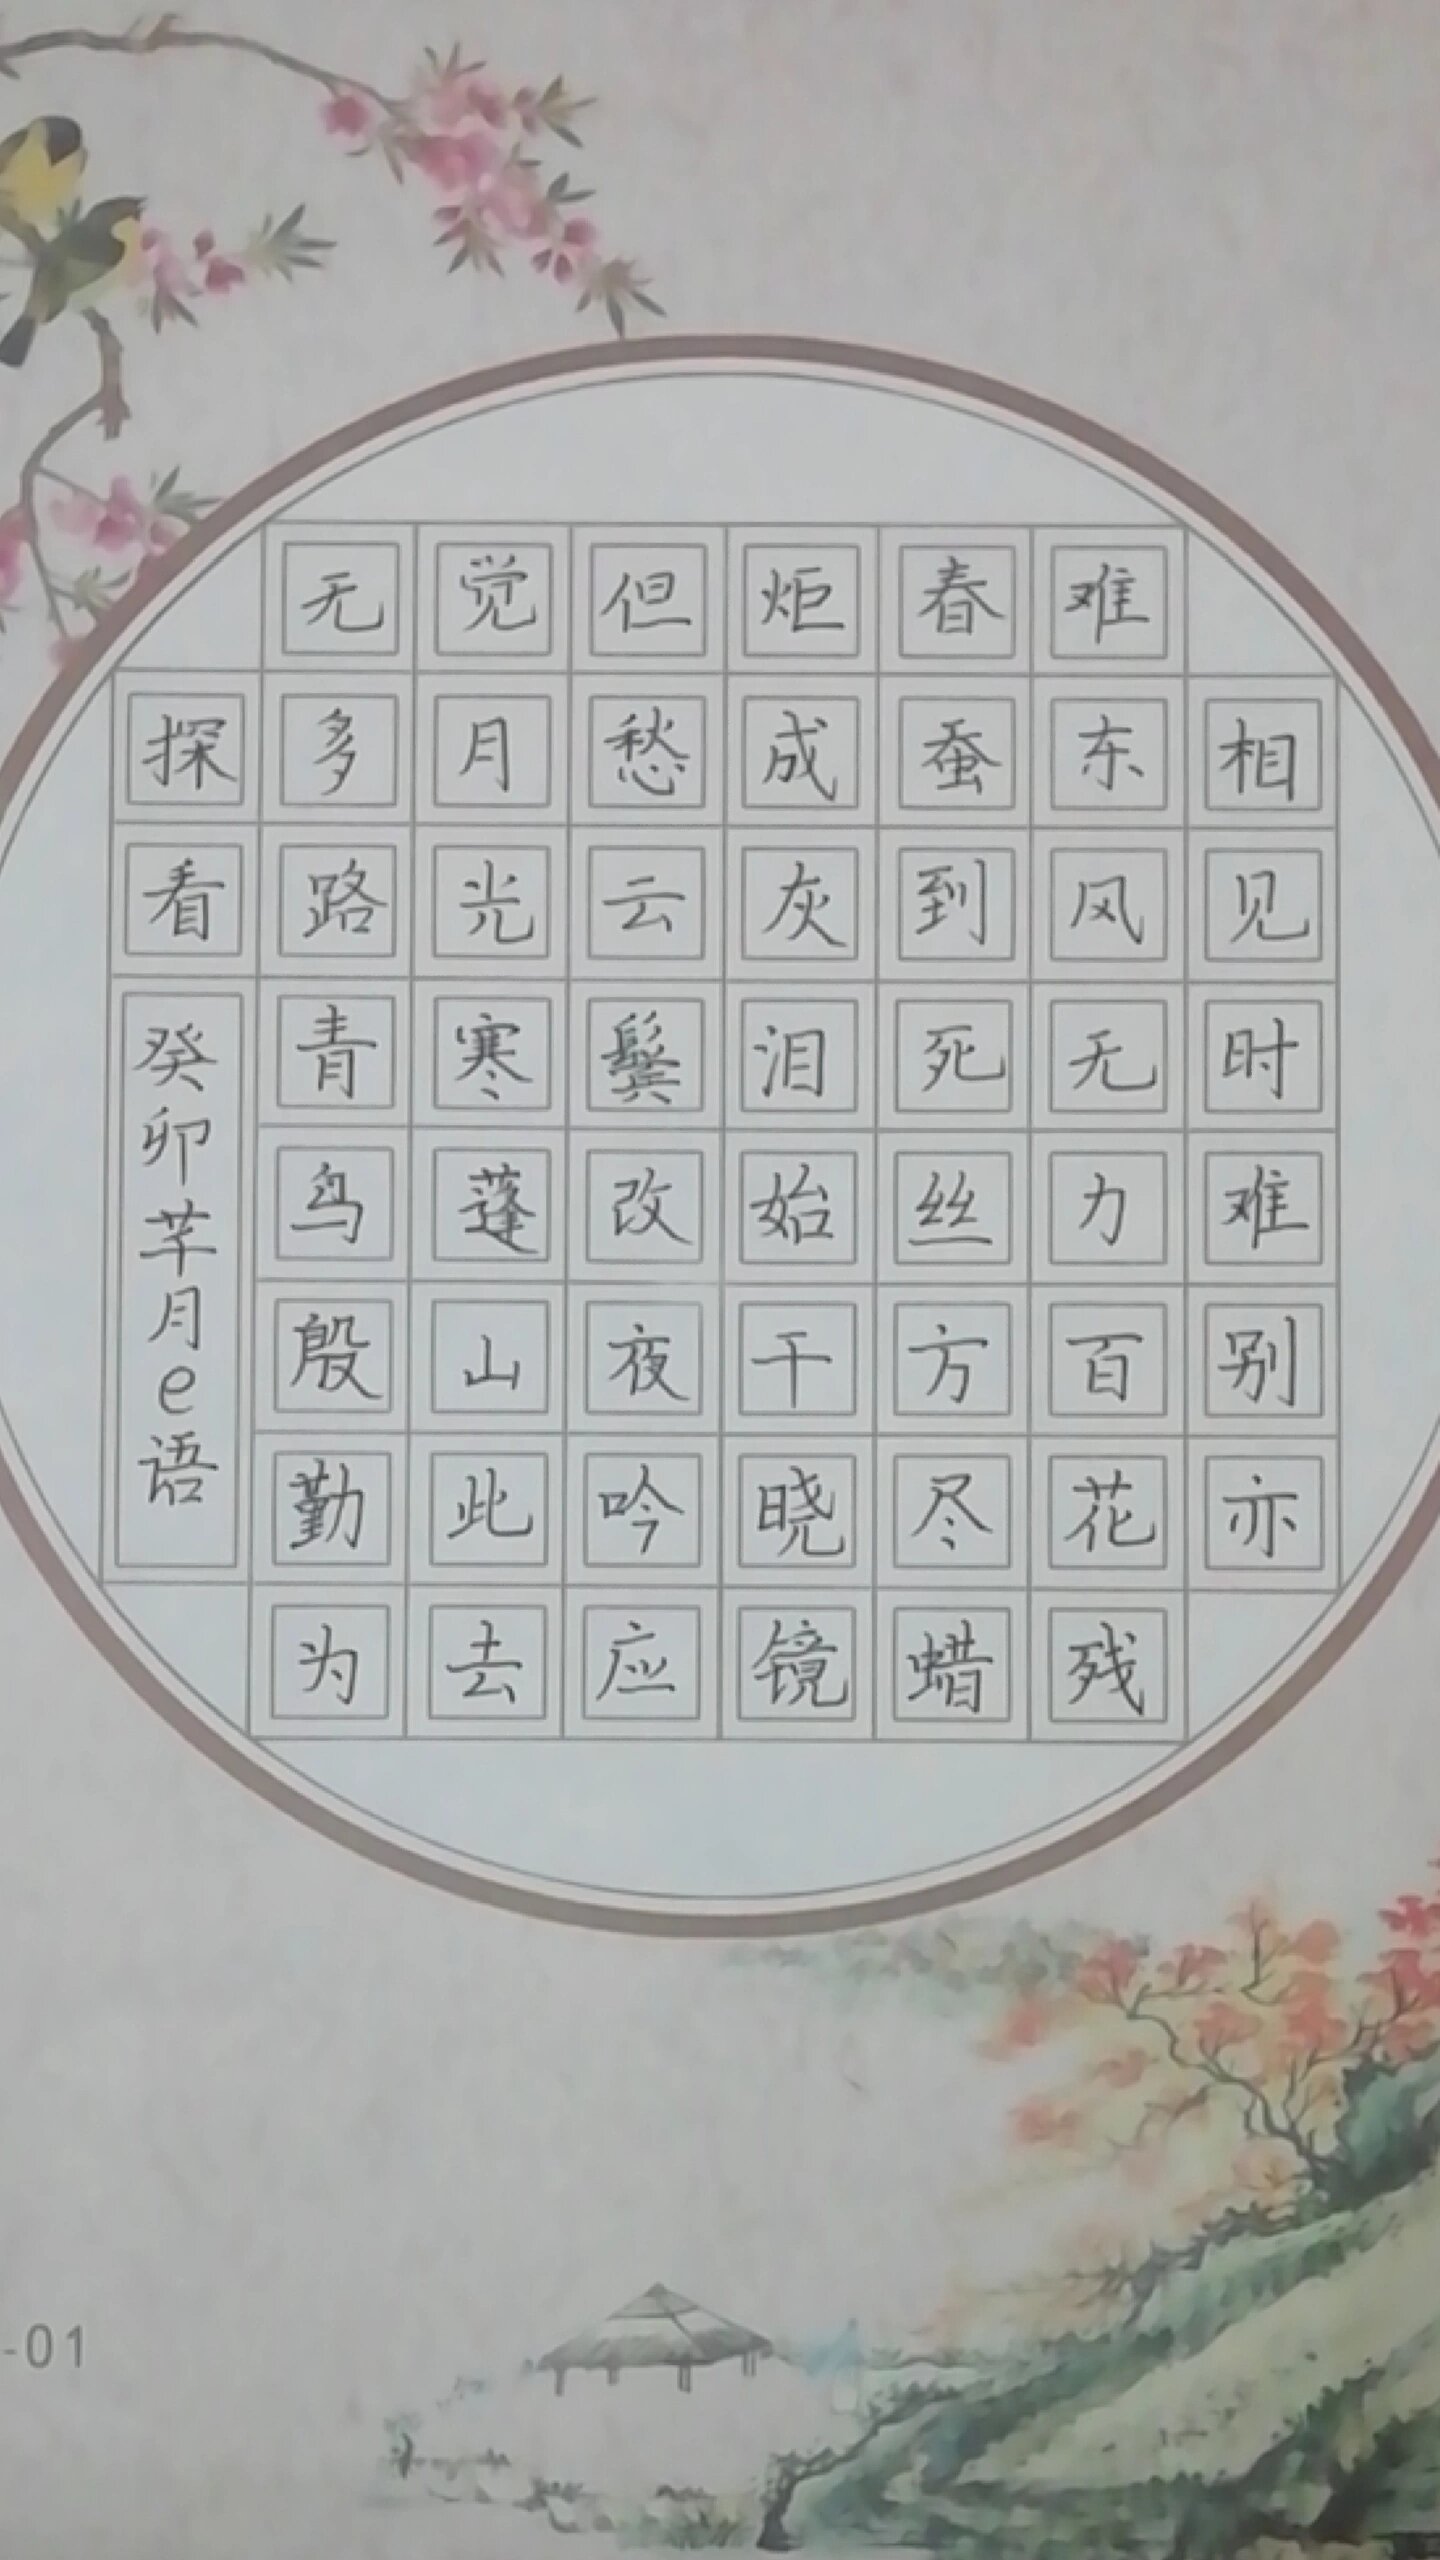 相见时难别亦
难东风无力百花残
春蚕到死丝方尽蜡
炬成灰泪始干晓镜
但愁云鬓改夜吟应
觉月光寒蓬山此去
无多路青鸟殷勤为
探看
癸卯芊月e语
-01